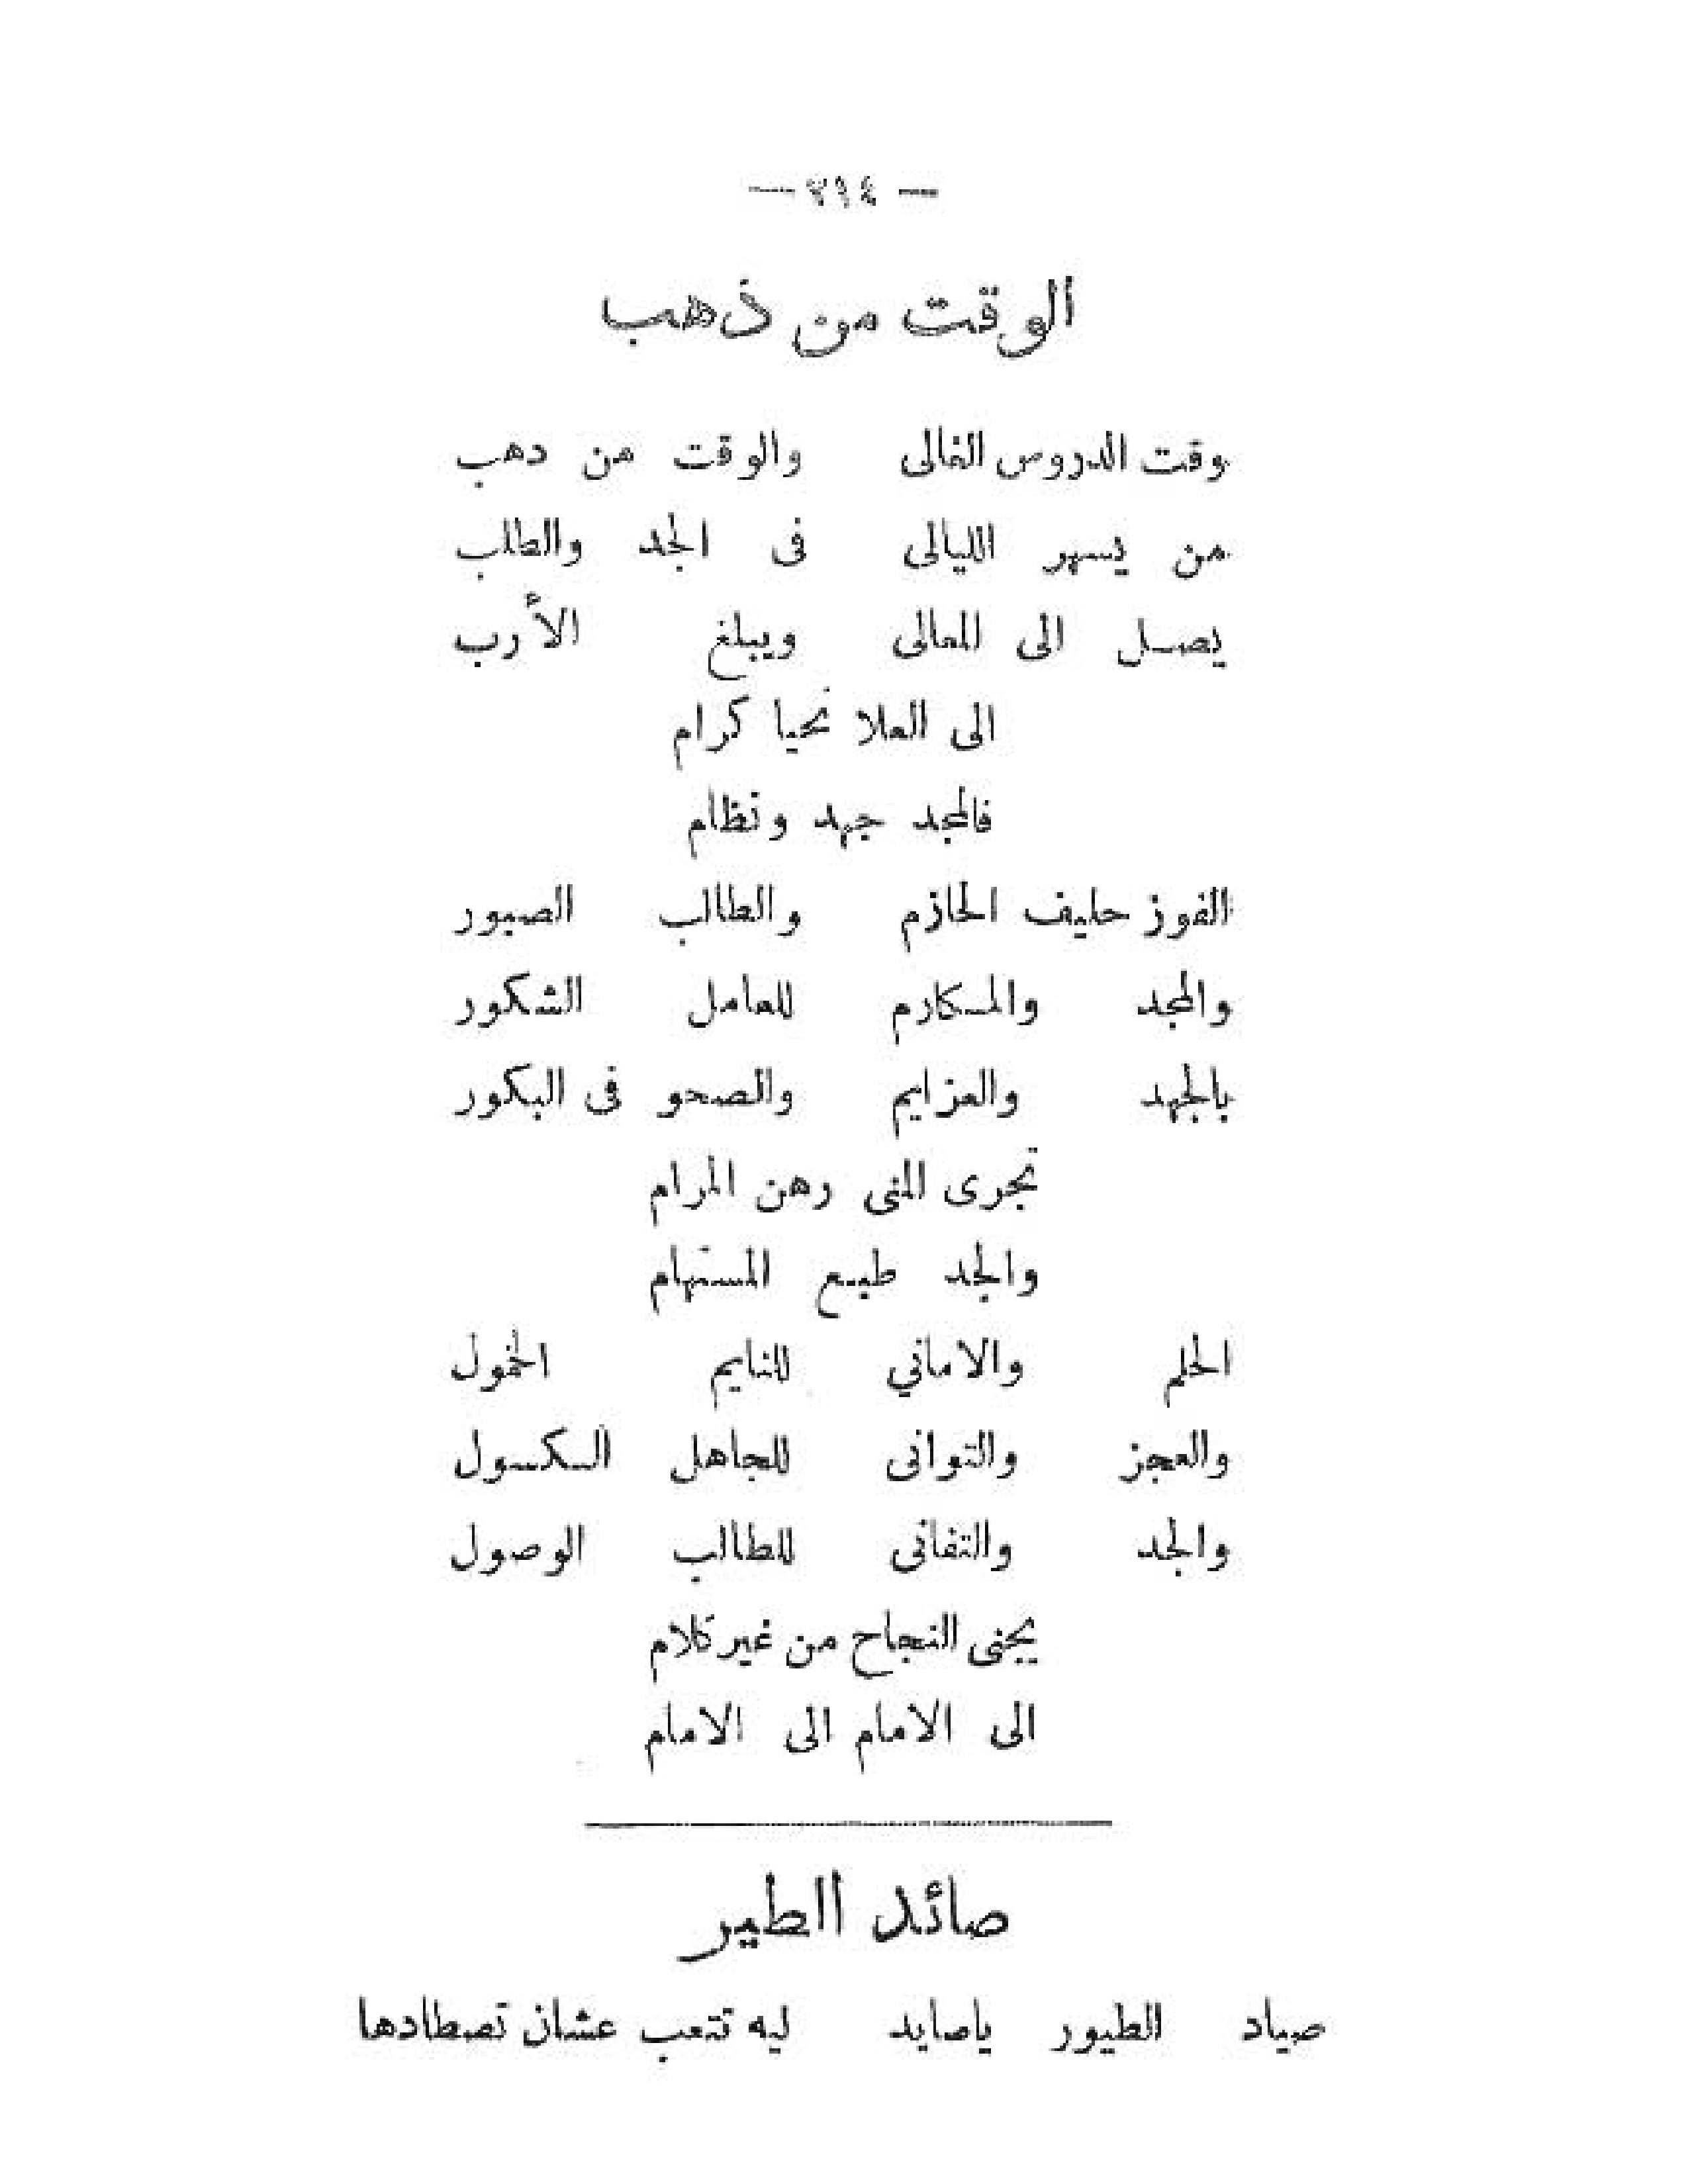 — ٣١٤ —
الوقت من ذهب
وقت الدروس الغالى والوقت من دهب
من يسهر الليالى فى الجد والطلب
يصل الى المعالى ويبلغ الأرب
الى العلا نحيا كرام
فالمجد جهد ونظام
الفوز حليف الحازم والطالب الصبور
والمجد والمكارم للعامل الشكور
بالجهد والعزايم والصحو فى البكور
تجرى المنى رهن المرام
والجد طبع المستهام
الحلم والاماني للنايم الخمول
والعجز والتوانى للجاهل الكسول
والجد والتفانى للطالب الوصول
يجنى النجاح من غير كلام
الى الامام الى الامام
صائد الطير
صياد الطيور ياصايد ليه تتعب عشان تصطادها